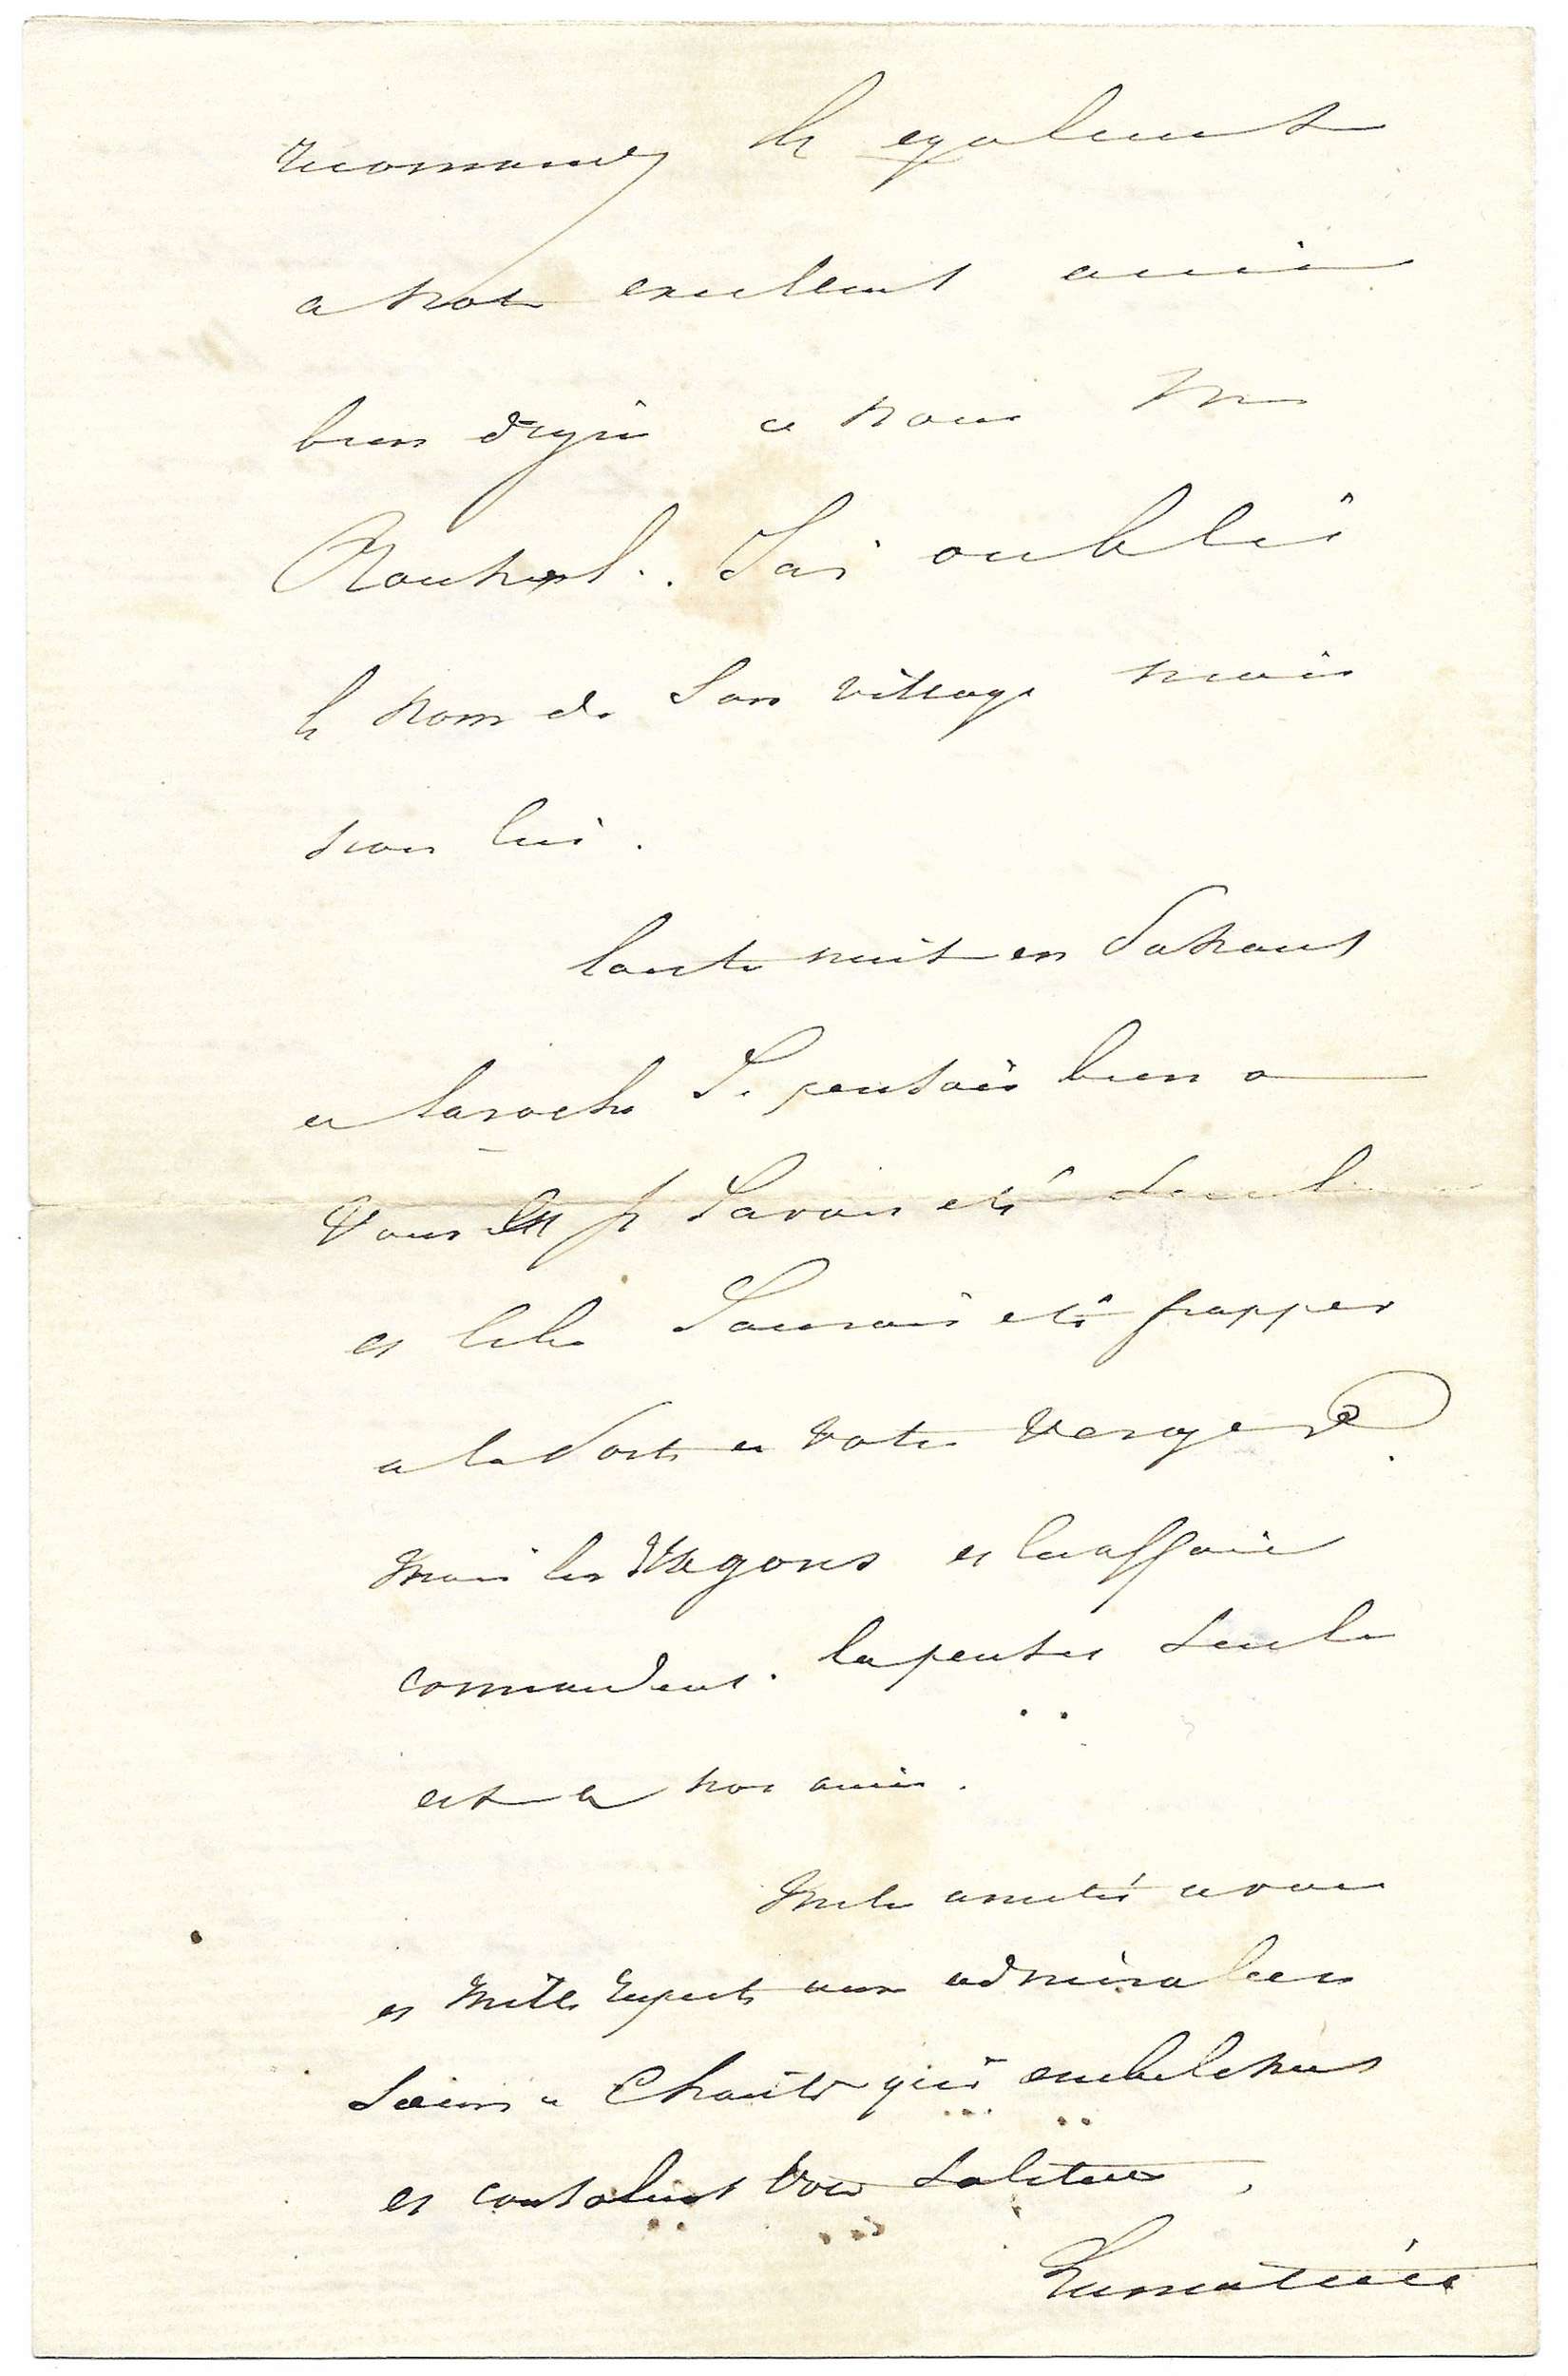 recommandez le egalement
a notre excellent ami
bien digne a nous Mr
Rouhel. J'ai oublié
le nom de son village mais
non lui.
toute nuit en
a Laroche Je pensais bien a
vous et si J'avais été seul
et libre J'aurais été frapper
a la porte a votre verger
mais les Wagons et les affaires
commandent. la pensée seule
est a nos amis.
mille amitiés a vous
et mille respects aux admirables
Soeurs a Charité qui embelissent
et consolent votre solitude,
Lamartine